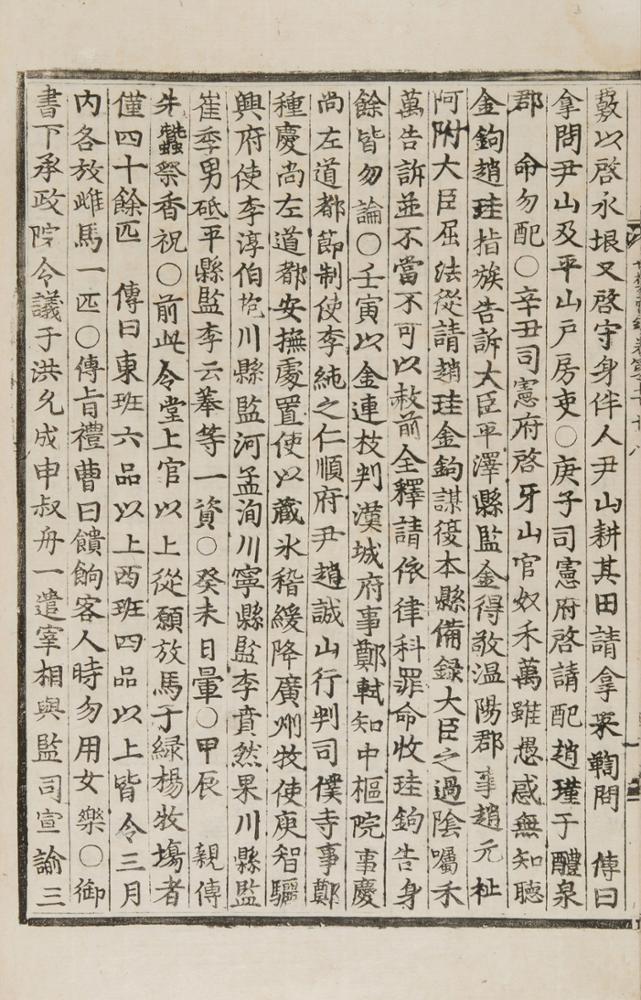 覈以啓永垠又啓守身伴人尹山耕其田請拿來鞫問　傳曰
拿問尹山及平山戶房吏○庚子司憲府啓請配趙瑾于醴泉
郡　命勿配○辛丑司憲府啓牙山官奴禾萬雖愚惑無知聽
金鉤趙珪指嗾告訴大臣平澤縣監金得敬溫陽郡事趙元祉
阿附大臣屈法從請趙珪金鉤謀復本縣備錄大臣之過陰囑禾
萬告訴並不當不可以赦前全釋請依律科罪命收珪鉤告身
餘皆勿論○壬寅以金連枝判漢城府事鄭軾知中樞院事慶
尙左道都節制使李純之仁順府尹趙誠山行判司僕寺事鄭
種慶尙左道都安撫處置使以藏氷稽緩降廣州牧使庾智驪
興府使李淳伯抱川縣監河孟洵川寧縣監李賁然果川縣監
崔季男砥平縣監李云蓁等一資○癸未日暈○甲辰　親傳
先蠶祭香祝○前此令堂上官以上從願放馬于綠楊牧場者
僅四十餘匹　傳曰東班六品以上西班四品以上皆令三月
內各放雌馬一匹○傳旨禮曹曰饋餉客人時勿用女樂○御
書下承政院令議于洪允成申叔舟一遣宰相與監司宣諭三